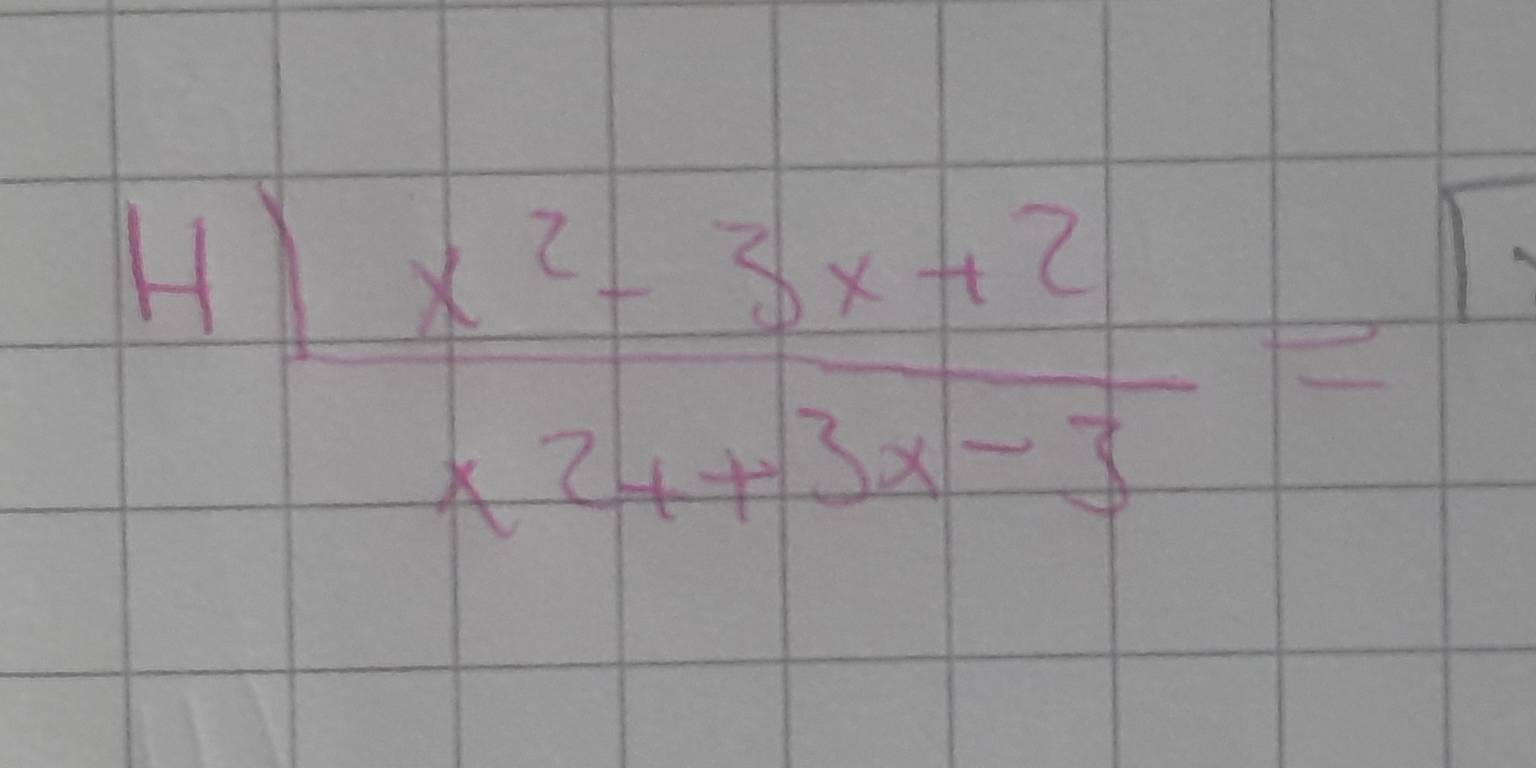 H) x² - 3x + 2 =
x² + + 3x - 3